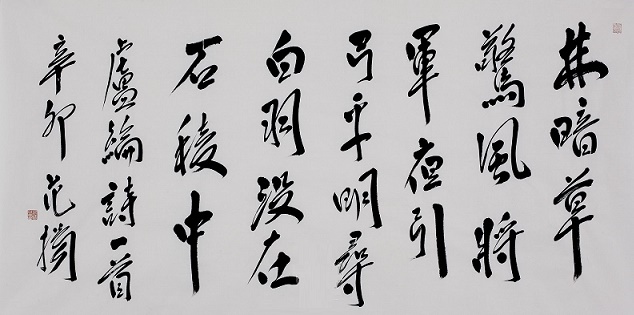 林暗草
驚風將
軍夜引
弓平明尋
白羽没在
石稜中
盧綸詩一首
辛卯